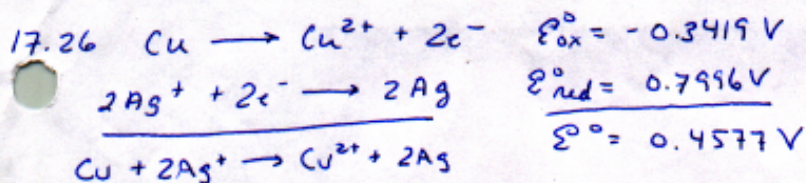 17.26 Cu → Cu²⁺ + 2e⁻ ℰ°ox = - 0.3419 V
2Ag⁺ + 2e⁻ → 2Ag ℰ°red = 0.7996 V
Cu + 2Ag⁺ → Cu²⁺ + 2Ag ℰ° = 0.4577 V